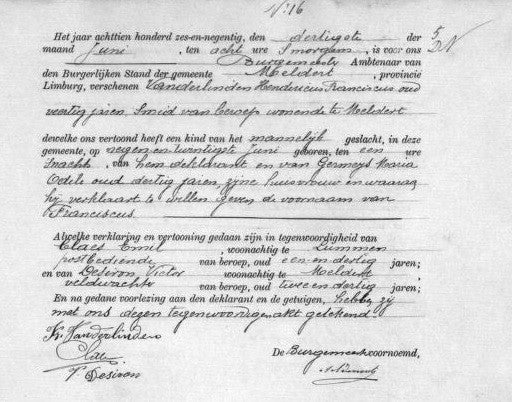 N° 16
Het jaar achttien honderd zes-en-negentig, den dertigste der
maand Juni, ten acht ure 's morgens, is voor ons
Burgemeester Ambtenaar van
den Burgerlijken Stand der gemeente Meldert, provincie
Limburg, verschenen Vanderlinden Hendricus Franciscus oud
veertig jaren, Smid van beroep wonende te Meldert
dewelke ons vertoond heeft een kind van het mannelijk geslacht, in deze
gemeente, op negen en twintigste Juni geboren, ten een ure
snachts, van hem deklarant en van Germeys Maria
Odile oud dertig jaren, zijne huisvrouw en waaraan
hij verklaart te willen geven de voornaam van
Franciscus.
Alwelke verklaring en vertooning gedaan zijn in tegenwoordigheid van
Claes Emil, woonachtig te Lummen
postbediende van beroep, oud een en dertig jaren;
en van Desiron, Victor woonachtig te Meldert
veldwachter van beroep, oud twee en dertig jaren;
En na gedane voorlezing aan den deklarant en de getuigen, hebben zij
met ons dezen tegenwoordigen akt geteekend
Vanderlinden
V Desiron
De Burgemeester voornoemd,